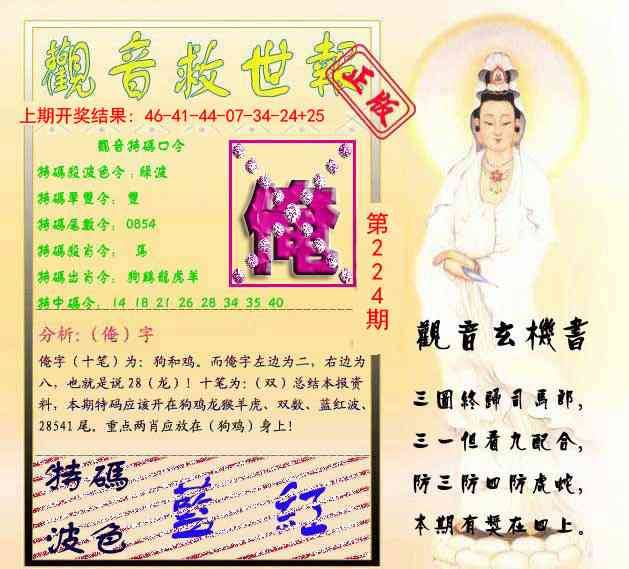 觀音救世報
正版
上期开奖结果：46-41-44-07-34-24+25
觀音特碼口令
特碼殺波色令：綠波
特碼單雙令： 雙
特碼尾數令： 0854
特碼殺肖令： 馬
特碼出肖令： 狗鷄龍虎羊
特中碼令： 14 18 21 26 28 34 35 40
俺
第224期
分析:（俺）字
俺字（十笔）为：狗和鸡。而俺字左边为二，右边为
八，也就是说 28（龙）！十笔为：（双）总结本报资
料，本期特码应该开在狗鸡龙猴羊虎、双数、蓝红波、
28541 尾。重点两肖应放在（狗鸡）身上！
特碼
波色
藍 紅
觀音玄機書
三國終歸司馬郎，
三一但看九配合，
防三防四防虎蛇，
本期有獎在四上。